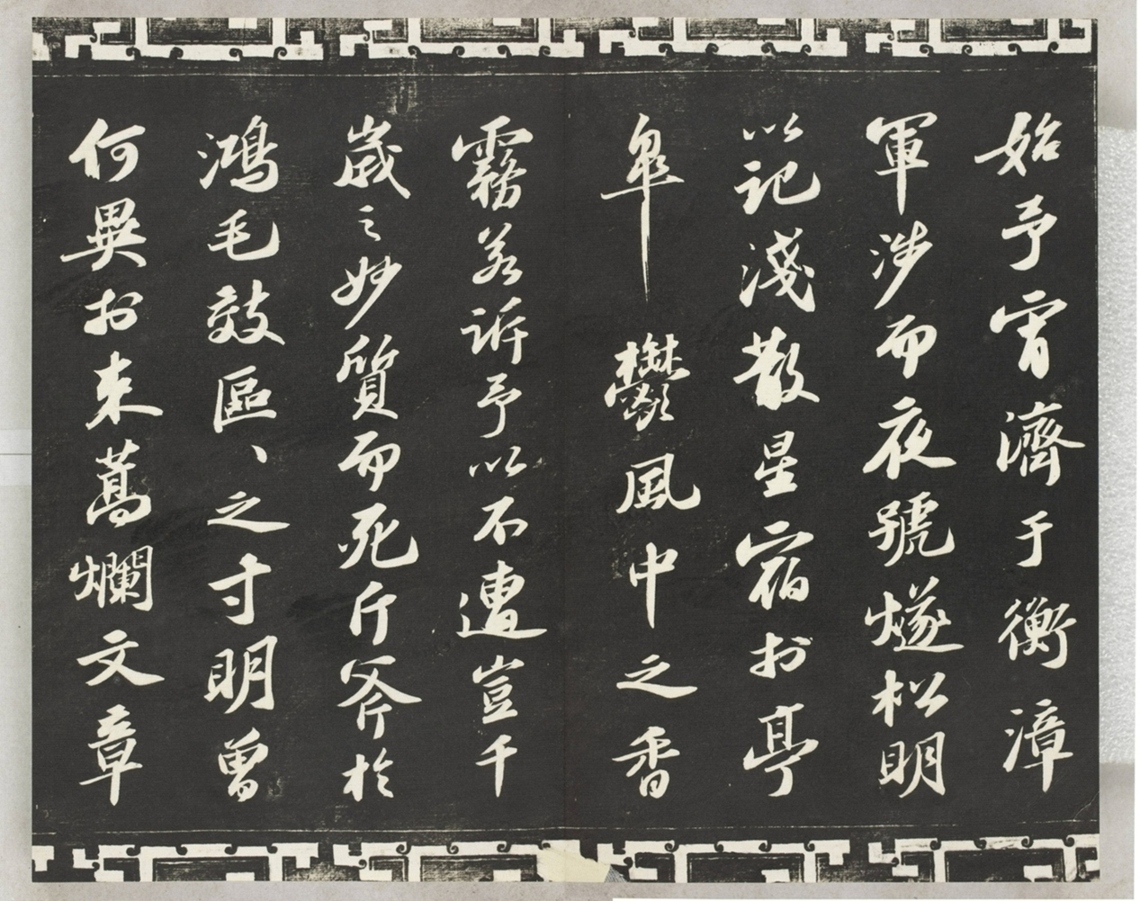 始予宵濟于衡漳
軍涉而夜號燧松明
以記淺散星宿於亭
皐鬱風中之香
霧若訴予以不遭豈千
歲之妙質而死斤斧於
鴻毛效區、之寸明曾
何異於束蒿爛文章